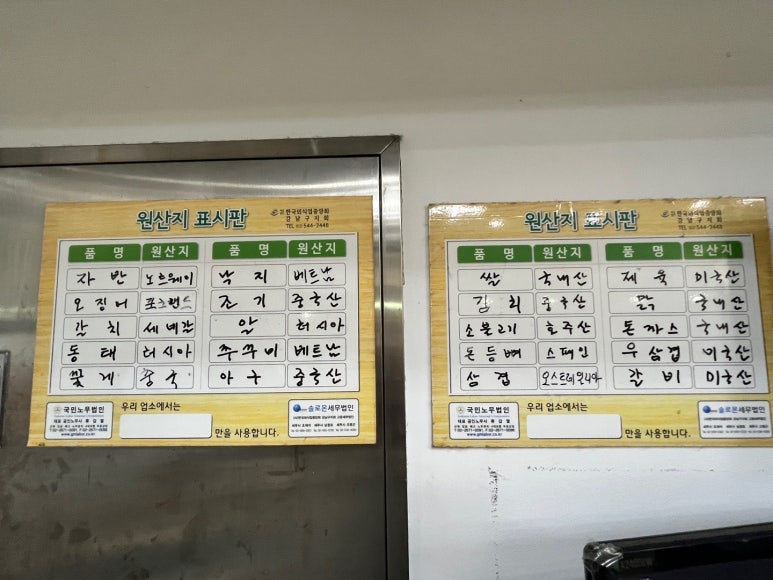 원산지 표시판
(사)한국외식업중앙회
강남구지회
TEL 02) 544-2448
품 명 원산지 품 명 원산지
자 반 노르웨이 낙 지 베트남
오 징 어 포클랜드 조 기 중국산
갈 치 세네갈 알 러시아
동 태 러시아 쭈꾸미 베트남
꽃 게 중국 아 구 중국산
국민노무법인
대표 공인노무사
우리 업소에서는
만을 사용합니다.
솔로몬세무법인
원산지 표시판
(사)한국외식업중앙회
강남구지회
TEL 02) 544-2448
품 명 원산지 품 명 원산지
쌀 국내산 제 육 미국산
김 치 중국산 닭 국내산
소불고기 호주산 돈까스 국내산
돈등뼈 스페인 우삼겹 미국산
삼 겹 오스트리아 갈 비 미국산
국민노무법인
대표 공인노무사
우리 업소에서는
만을 사용합니다.
솔로몬세무법인